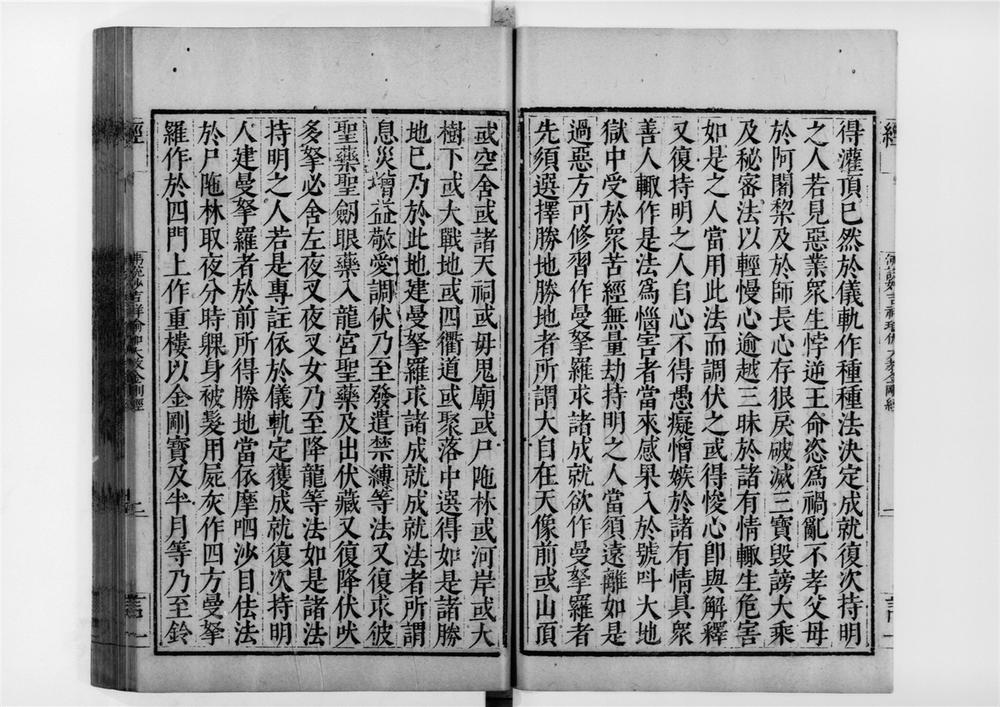 得灌頂已然於儀軌作種種法決定成就復次持明
之人若見惡業眾生悖逆王命恣為禍亂不孝父母
於阿闍棃及於師長心存狠戾破滅三寶毀謗大乘
及秘密法以輕慢心逾越三昧於諸有情輙生危害
如是之人當用此法而調伏之或得悛心卽與解釋
又復持明之人自心不得愚癡憎嫉於諸有情具眾
善人輙作是法為惱害者當來感果入於號呌大地
獄中受於眾苦經無量劫持明之人當須遠離如是
過惡方可修習作曼拏羅求諸成就欲作曼拏羅者
先須選擇勝地勝地者所謂大自在天像前或山頂
或空舍或諸天祠或母鬼廟或尸陁林或河岸或大
樹下或大戰地或四衢道或聚落中選得如是諸勝
地已乃於此地建曼拏羅求諸成就成就法者所謂
息災增益敬愛調伏乃至發遣禁縛等法又復求彼
聖藥聖劒眼藥入龍宮聖藥及出伏藏又復降伏吠
多拏必舍左夜叉夜叉女乃至降龍等法如是諸法
持明之人若是專註依於儀軌定獲成就復次持明
人建曼拏羅者於前所得勝地當依摩呬沙目佉法
於尸陁林取夜分時躶身被髮用屍灰作四方曼拏
羅作於四門上作重樓以金剛寶及半月等乃至鈴
經